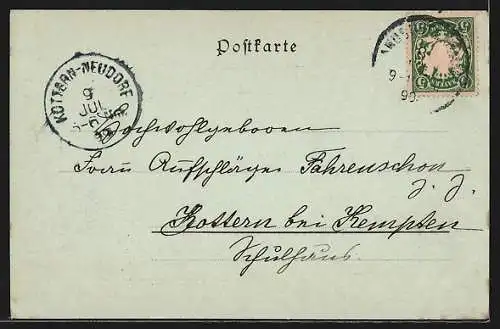 Postkarte
KOTTERN-NEUDORF
9
JUL
9-
90
5
5
5
5
Hochwohlgeboren
Herrn Aufschläger Fahrenschon
z. Z.
Kottern bei Kempten
Schulhaus